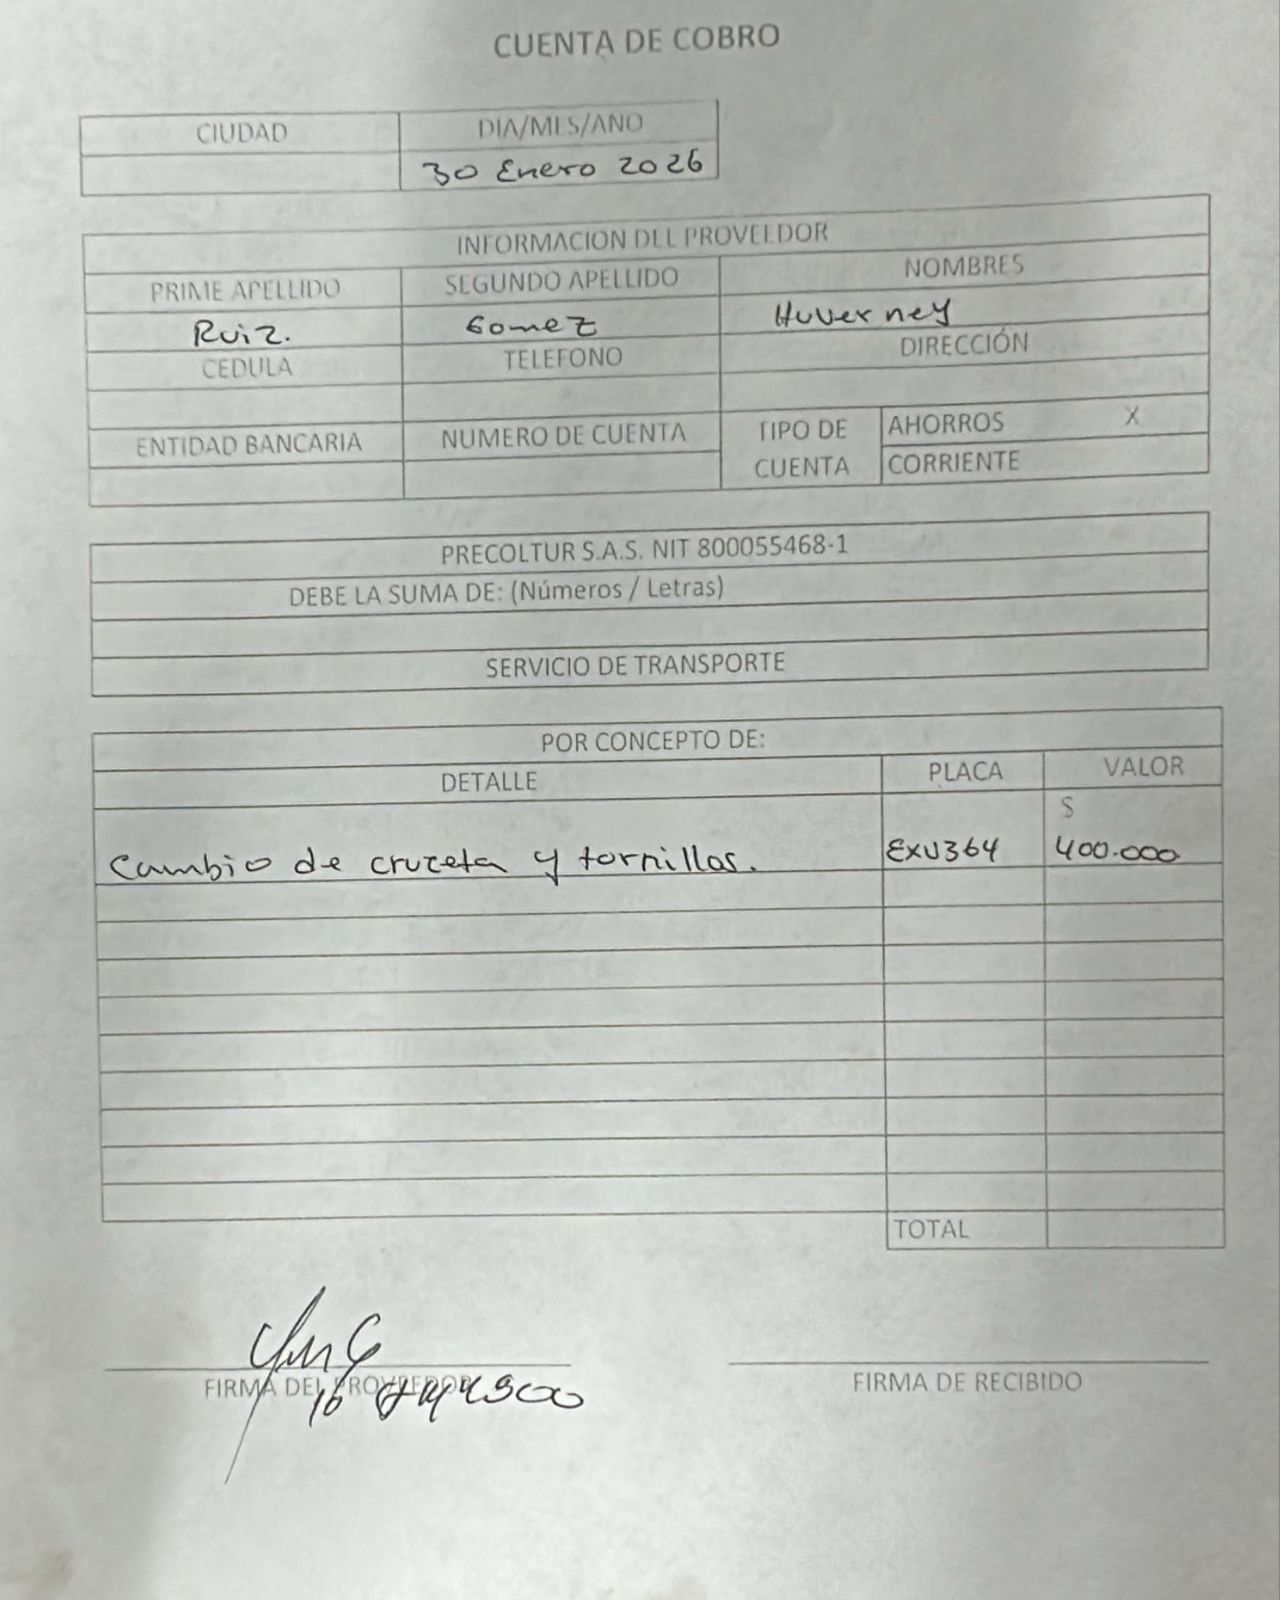 CUENTA DE COBRO
CIUDAD DIA/MES/AÑO
30 Enero 2026
INFORMACION DEL PROVEEDOR
PRIME APELLIDO SEGUNDO APELLIDO NOMBRES
Ruiz. Gomez Huverney
CEDULA TELEFONO DIRECCIÓN
ENTIDAD BANCARIA NUMERO DE CUENTA TIPO DE CUENTA AHORROS X
CORRIENTE
PRECOLTUR S.A.S. NIT 800055468-1
DEBE LA SUMA DE: (Números / Letras)
SERVICIO DE TRANSPORTE
POR CONCEPTO DE:
DETALLE PLACA VALOR
$
Cambio de cruceta y tornillos. EXU364 400.000
TOTAL
FIRMA DEL PROVEEDOR FIRMA DE RECIBIDO